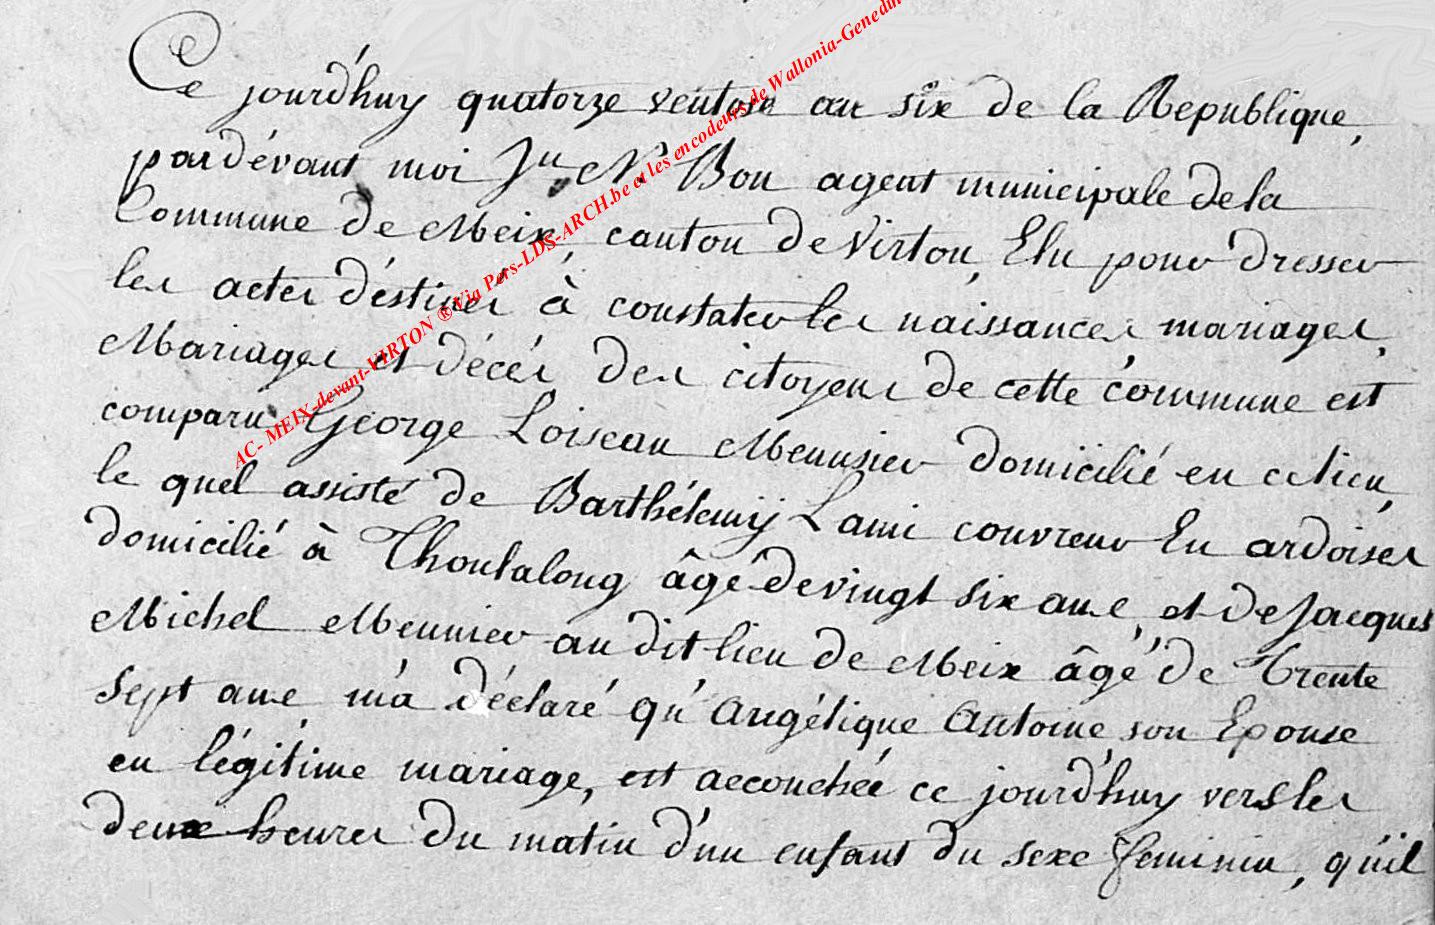 Ce jourd'huy quatorze ventose an six de la Republique,
pardévant moi Jn N. Bon agent municipale de la
Commune de Meix, canton de Virton, Elu pour dresser
les actes déstinés à constater les naissances mariages,
Mariages et décés des citoyens de cette commune est
comparu George Loiseau Meunier domicilié en ce lieu,
le quel assisté de Barthélemÿ Lami couvreur En ardoises
domicilié à Thontalong âgé de vingt six ans, et de Jacques
Michel Meunier au dit lieu de Meix âgé de trente
sept ans m'a déclaré qu'Angélique Antoine son Epouse
en légitime mariage, est accouchée ce jourd'huy vers les
deux heures du matin d'un enfant du sexe feminin, qu'il
AC- MEIX-devant-VIRTON ® Via Pers-LDS-ARCH.be et les encodeurs de Wallonia-Genedun